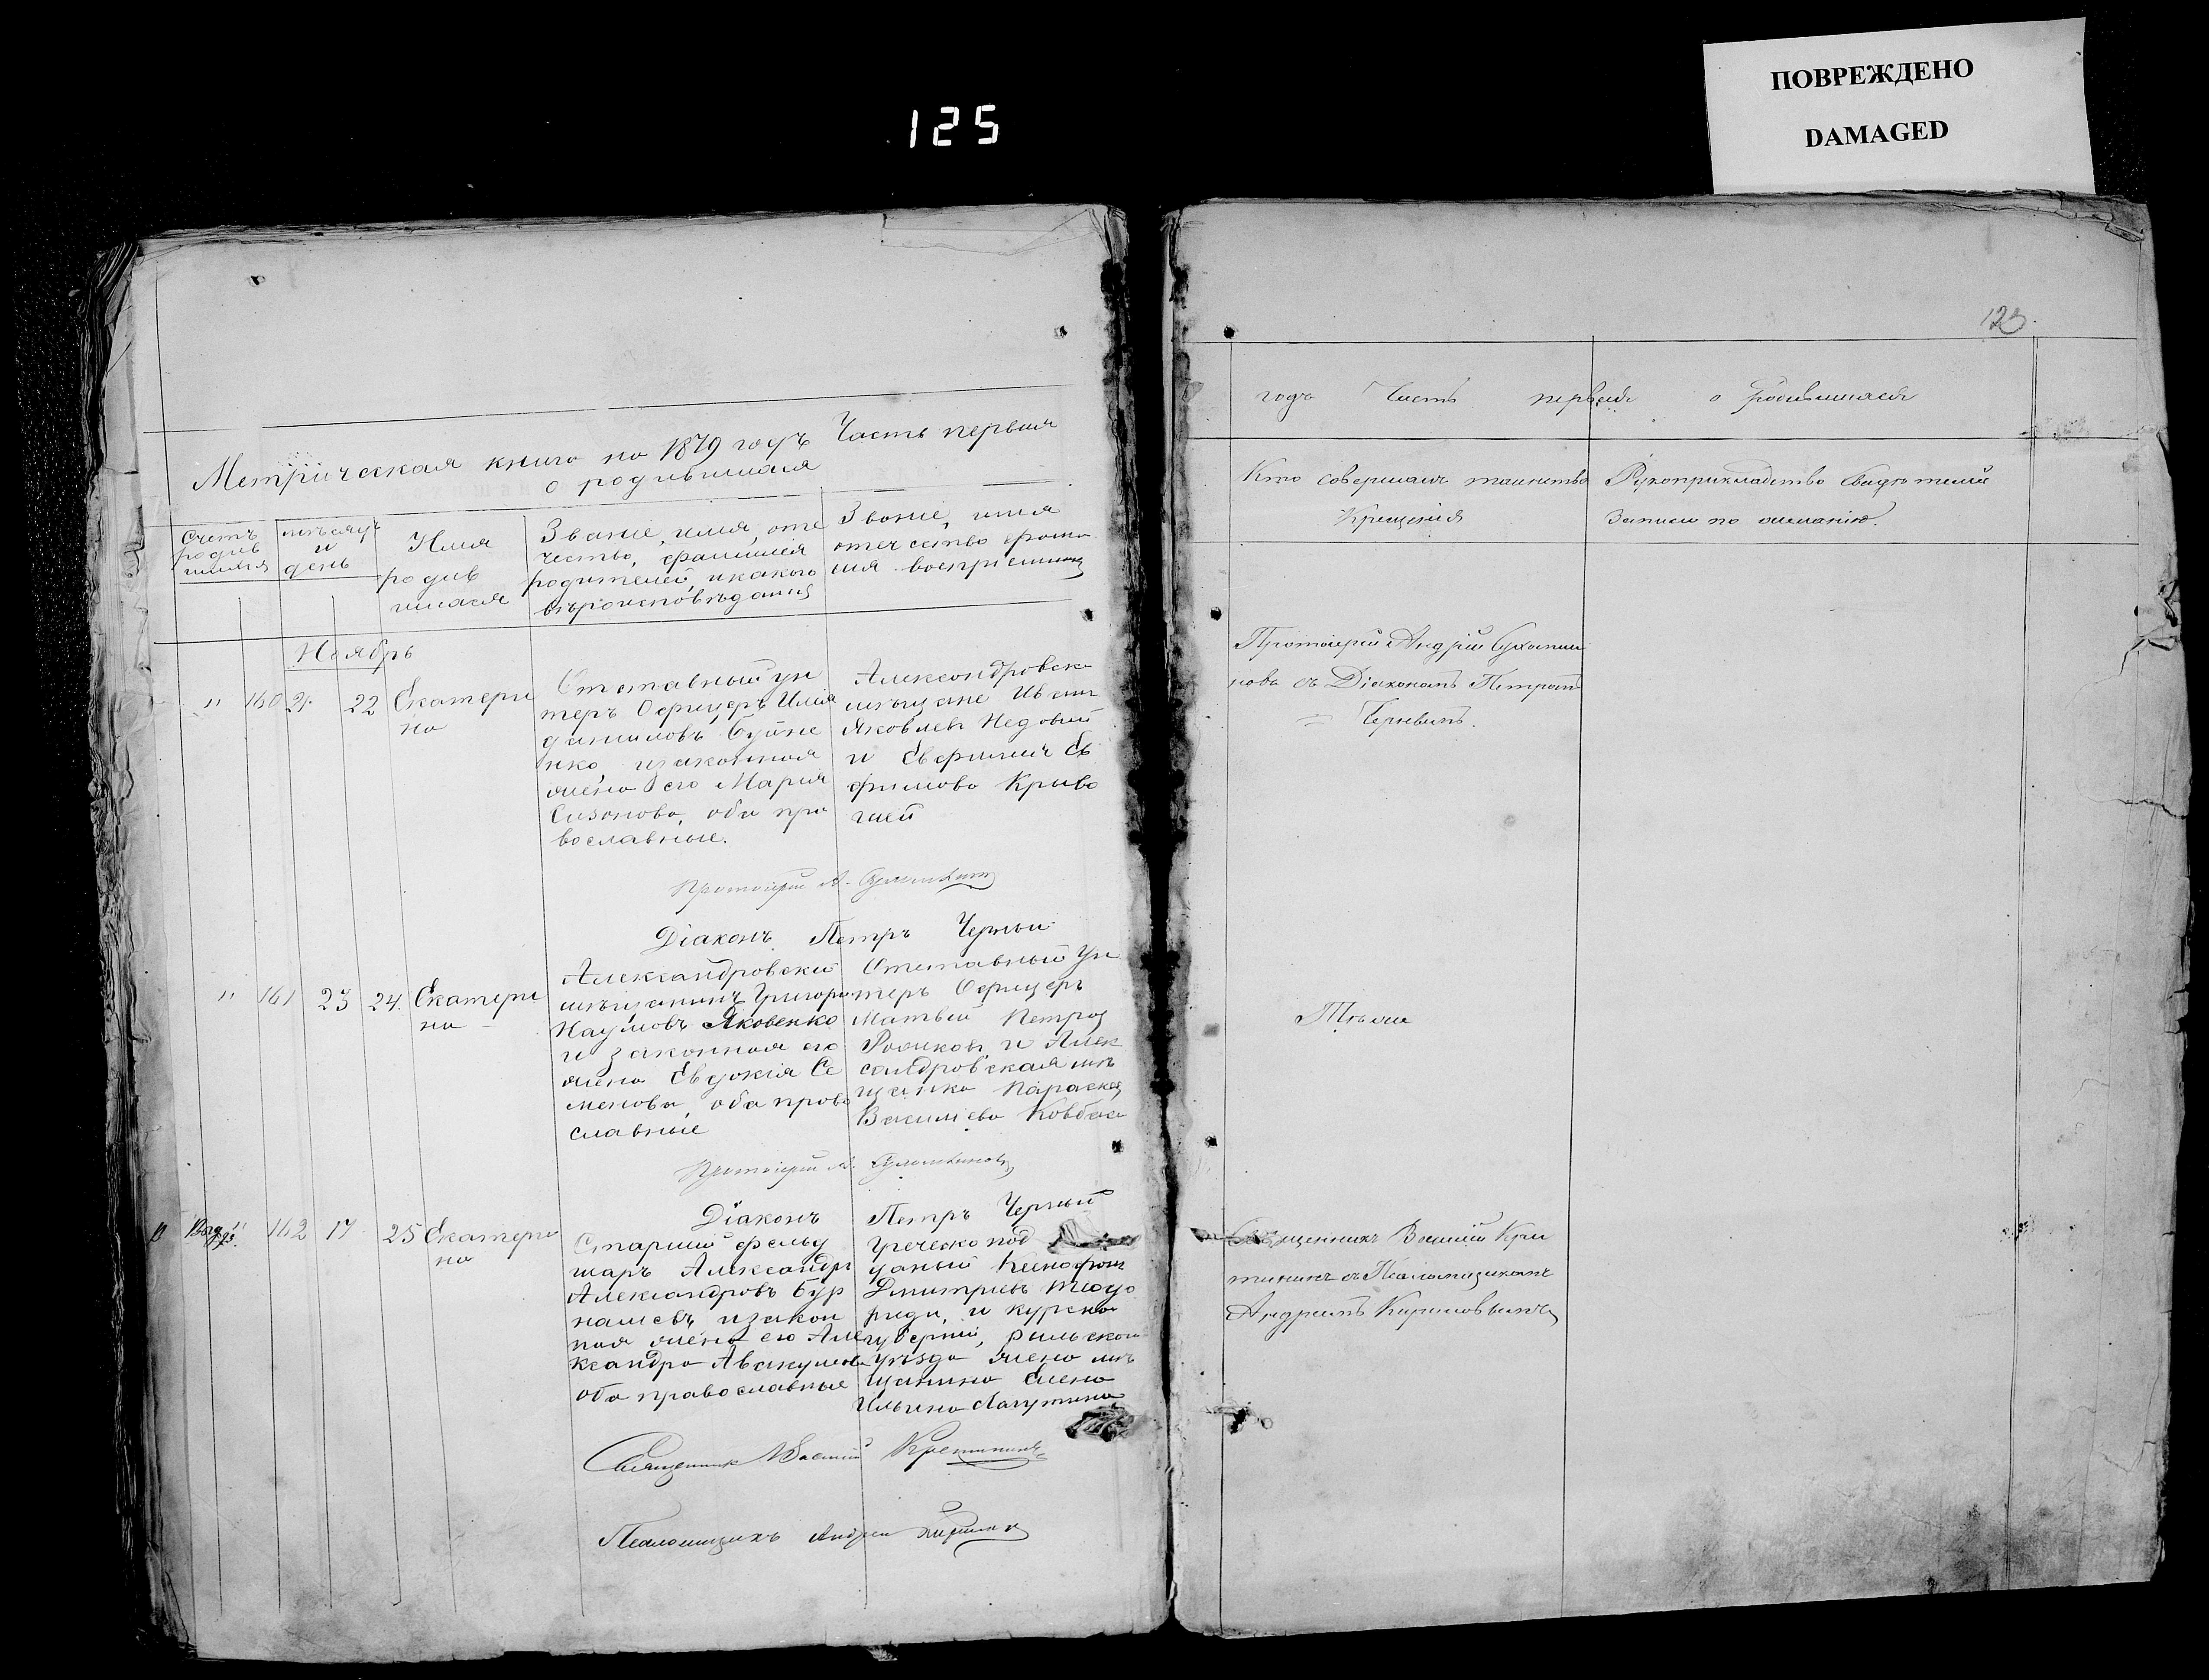 ПОВРЕЖДЕНО
DAMAGED
125
Метрическая книга на 1879 годъ Часть первая
о родившихся
Счетъ
родив
шихся
мѣсяцъ
и
день
Имя
родив
шихся
Званіе, имя, оте
чество, фамилія
родителей, и какого
вѣроисповѣданія
Званіе, имя
отечество фами
лія воспріемник
Ноябрь
" 160 21 22
Екатери
на
Отставный ун
теръ Офицеръ Илія
Даниловъ Буйне
нко, и законная
жена его Марія
Сизонова, оба пра
вославные.
Александровск
мѣщане Иван
Яковлевъ Недовий
и Евфимия Ев
фимова Криво
шей
Протоіерей А.
Діаконъ Петръ Черный
" 161 23 24.
Екатери
на
Александровскій
мѣщанинъ Григорій
Наумовъ Яковенко
и законная его
жена Евдокія Се
менова, оба право
славные
Отставный Ун
теръ Офицеръ
Матвѣй Петров
и Алек
сандровская мѣ
щанка Параскев
Василіева Ковбаса
Протоіерей А.
Діаконъ Петръ Черный
162 17 25
Екатери
на
Старшій фельд
шаръ Александръ
Александровъ Бур
нашевъ, и закон
ная жена его Але
ксандра Авакумова
оба православные
Греческо под
даный Ксенофон
Дмитріевъ Теодо
риди, и Курской
губерніи, Рыльского
уѣзда жена мѣ
щанина Елена
Ильина Лагутина
Священникъ Василій Кретининъ
Псаломщикъ Андрей
123.
годъ Часть первая о родившихся
Кто совершалъ таинство
Крещенія
Рукоприкладство свидѣтелей
записи по желанію.
Протоіерей Андрей Сухомли
новъ съ Діакономъ Петромъ
= Чернымъ.
Тѣ же
Священникъ Василій Кре
тининъ съ Псаломщикомъ
Андреемъ Кириловымъ